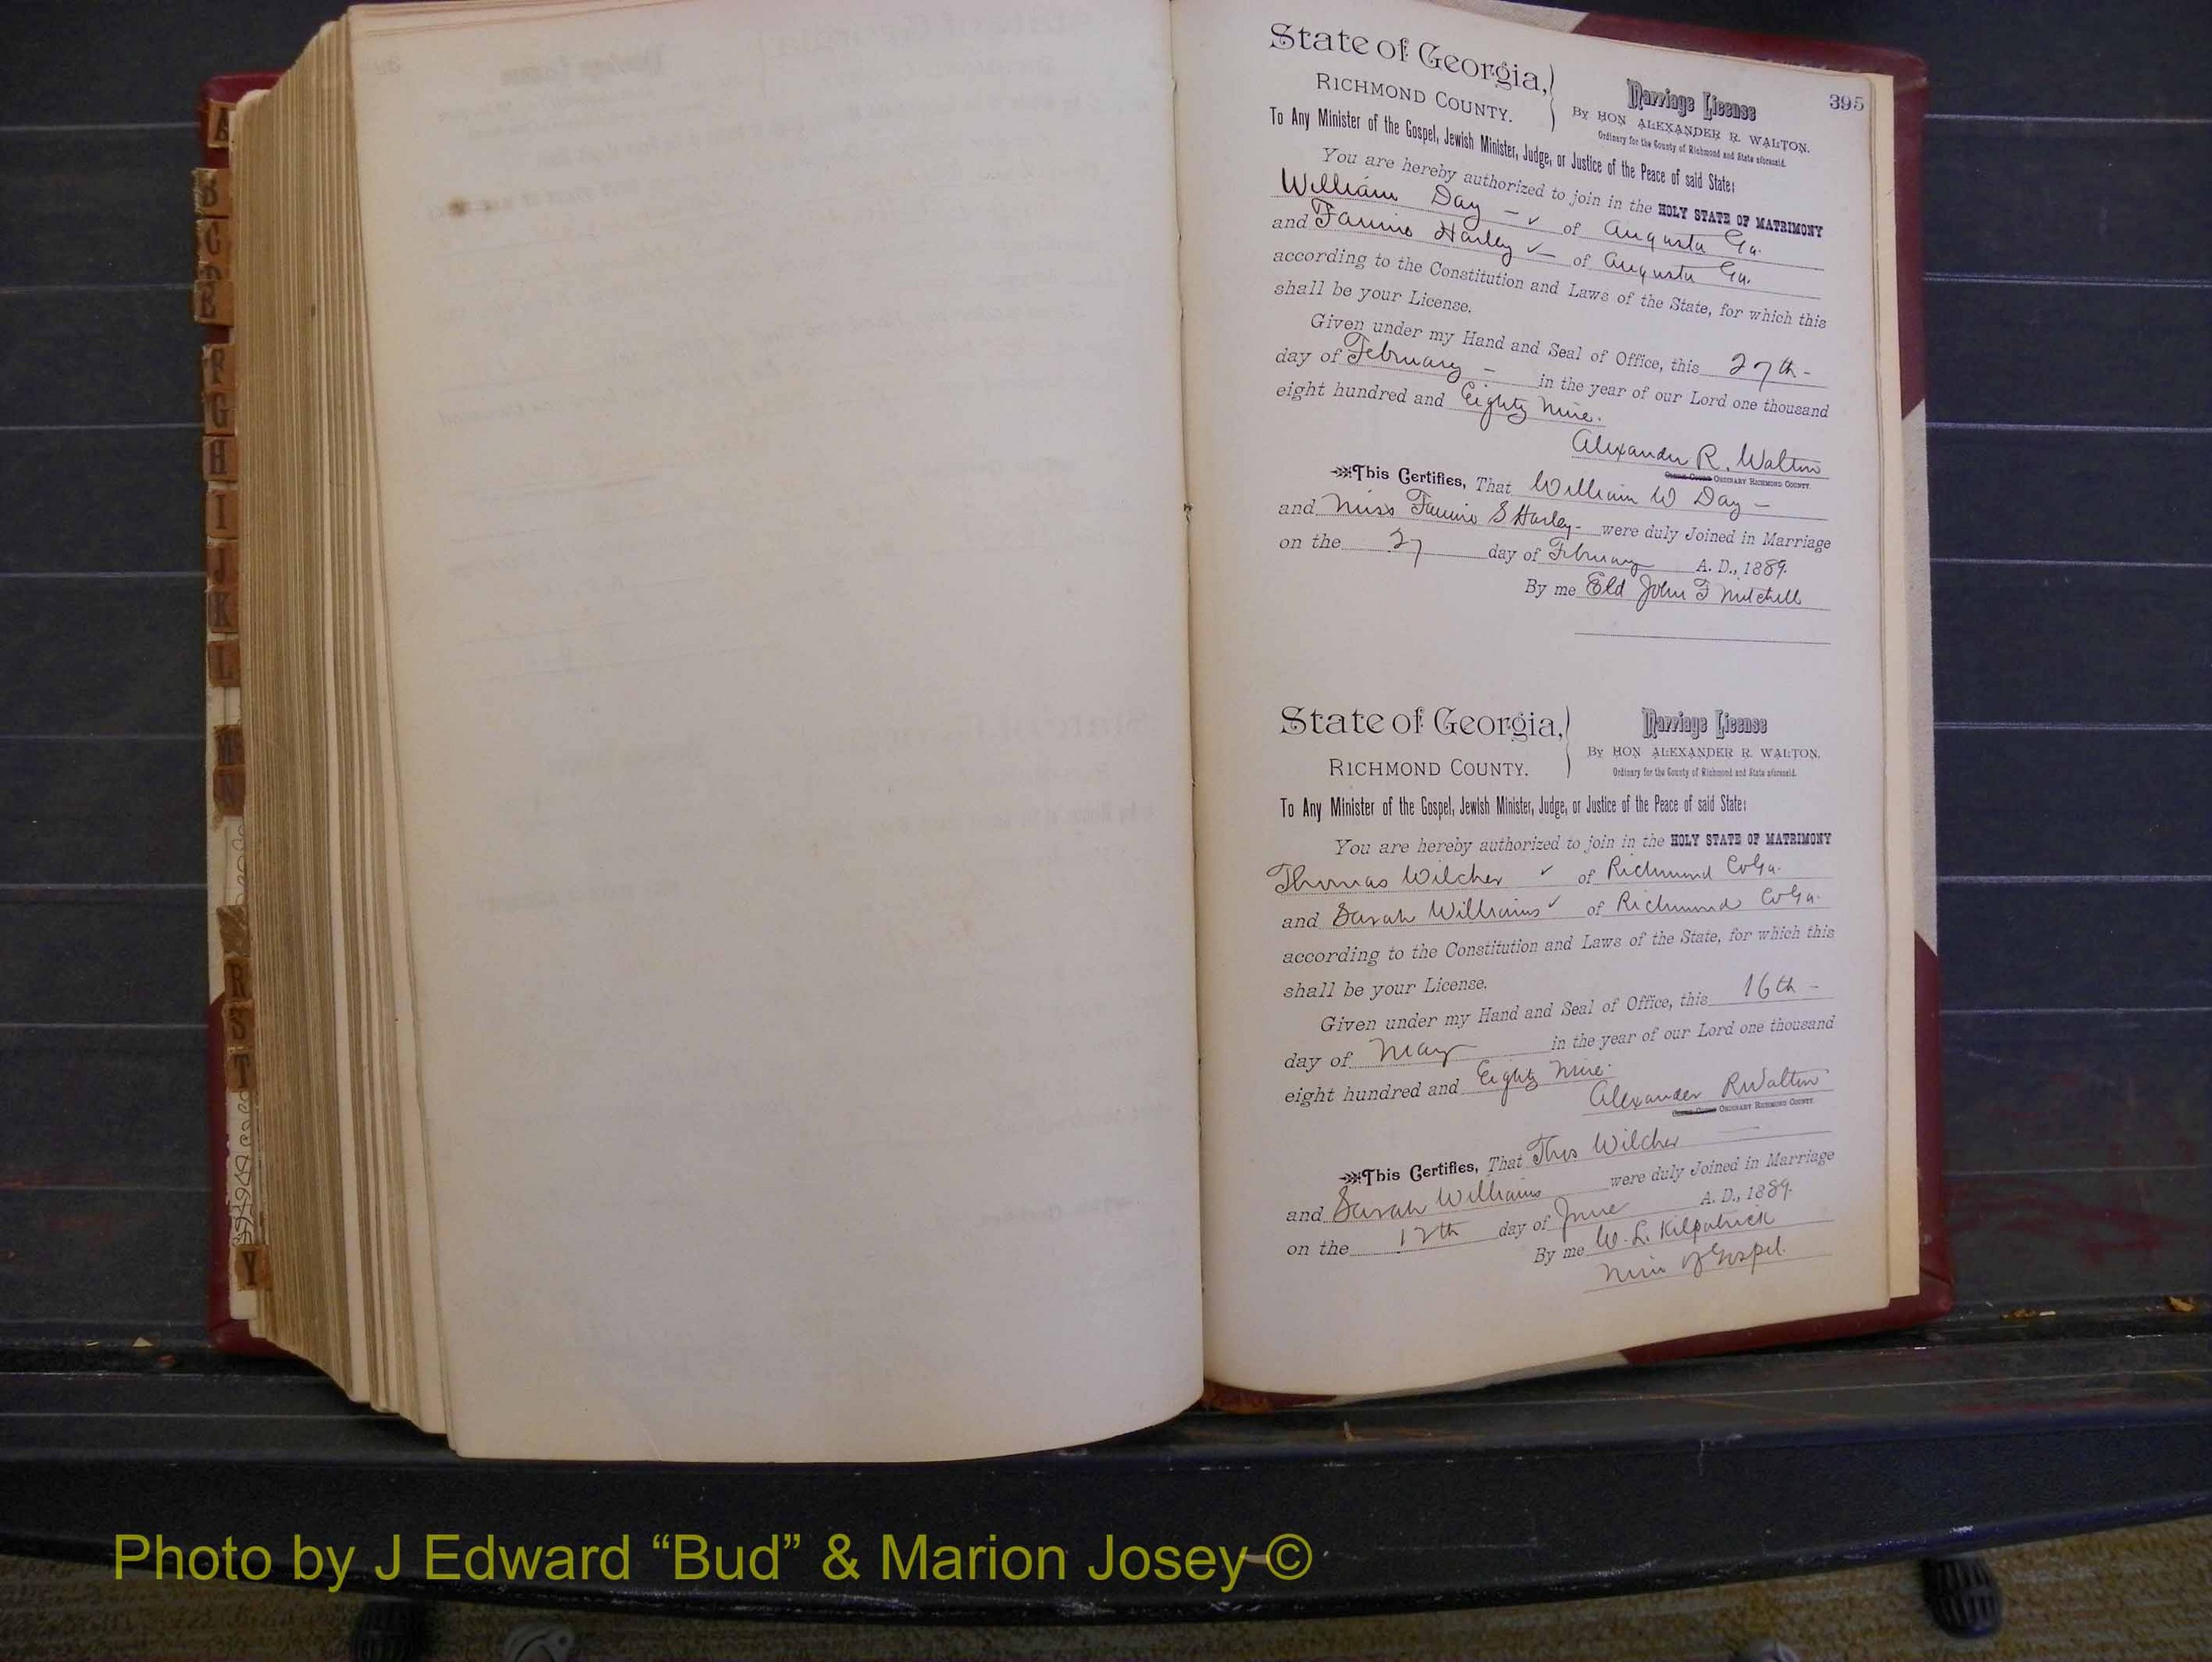 A
B
C
D
E
F
G
H
I
J
K
L
M
N
R
S
T
Y
395
State of Georgia,
RICHMOND COUNTY.
Marriage License
By HON ALEXANDER R. WALTON.
Ordinary for the County of Richmond and State aforesaid.
To Any Minister of the Gospel, Jewish Minister, Judge, or Justice of the Peace of said State:
You are hereby authorized to join in the HOLY STATE OF MATRIMONY
William Day - ✓ of Augusta Ga.
and Fannie Harley ✓ of Augusta Ga.
according to the Constitution and Laws of the State, for which this
shall be your License.
Given under my Hand and Seal of Office, this 27th -
day of February - in the year of our Lord one thousand
eight hundred and Eighty Nine.
Alexander R. Walton
ORDINARY RICHMOND COUNTY.
This Certifies, That William W Day -
and Miss Fannie S Harley - were duly Joined in Marriage
on the 27 day of February A. D., 1889.
By me Eld John F Mitchell
State of Georgia,
RICHMOND COUNTY.
Marriage License
By HON ALEXANDER R. WALTON.
Ordinary for the County of Richmond and State aforesaid.
To Any Minister of the Gospel, Jewish Minister, Judge, or Justice of the Peace of said State:
You are hereby authorized to join in the HOLY STATE OF MATRIMONY
Thomas Wilcher ✓ of Richmond Co Ga.
and Sarah Williams ✓ of Richmond Co Ga.
according to the Constitution and Laws of the State, for which this
shall be your License.
Given under my Hand and Seal of Office, this 16th -
day of May in the year of our Lord one thousand
eight hundred and Eighty Nine.
Alexander R Walton
ORDINARY RICHMOND COUNTY.
This Certifies, That Thos Wilcher
and Sarah Williams were duly Joined in Marriage
on the 12th day of June A. D., 1889.
By me W. L. Kilpatrick
Min of Gospel.
Photo by J Edward “Bud” & Marion Josey ©